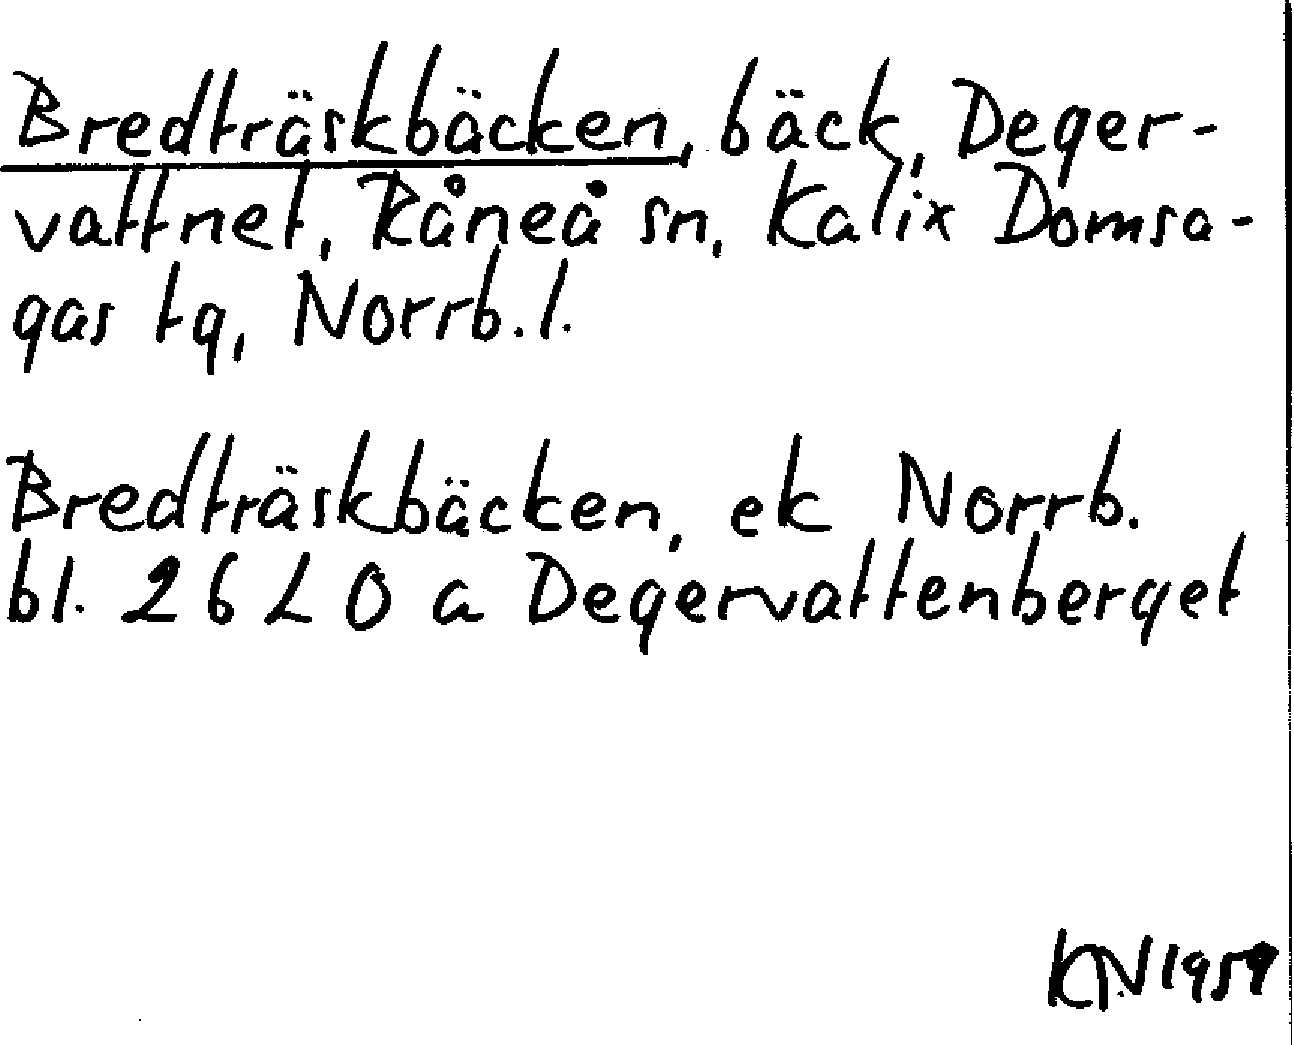 Bredträskbäcken, bäck, Deger-
vattnet, Råneå sn, Kalix Domsa-
gas tg, Norrb. l.
Bredträskbäcken, ek Norrb.
bl. 26 L 0 a Degervattenberget
KN 1959